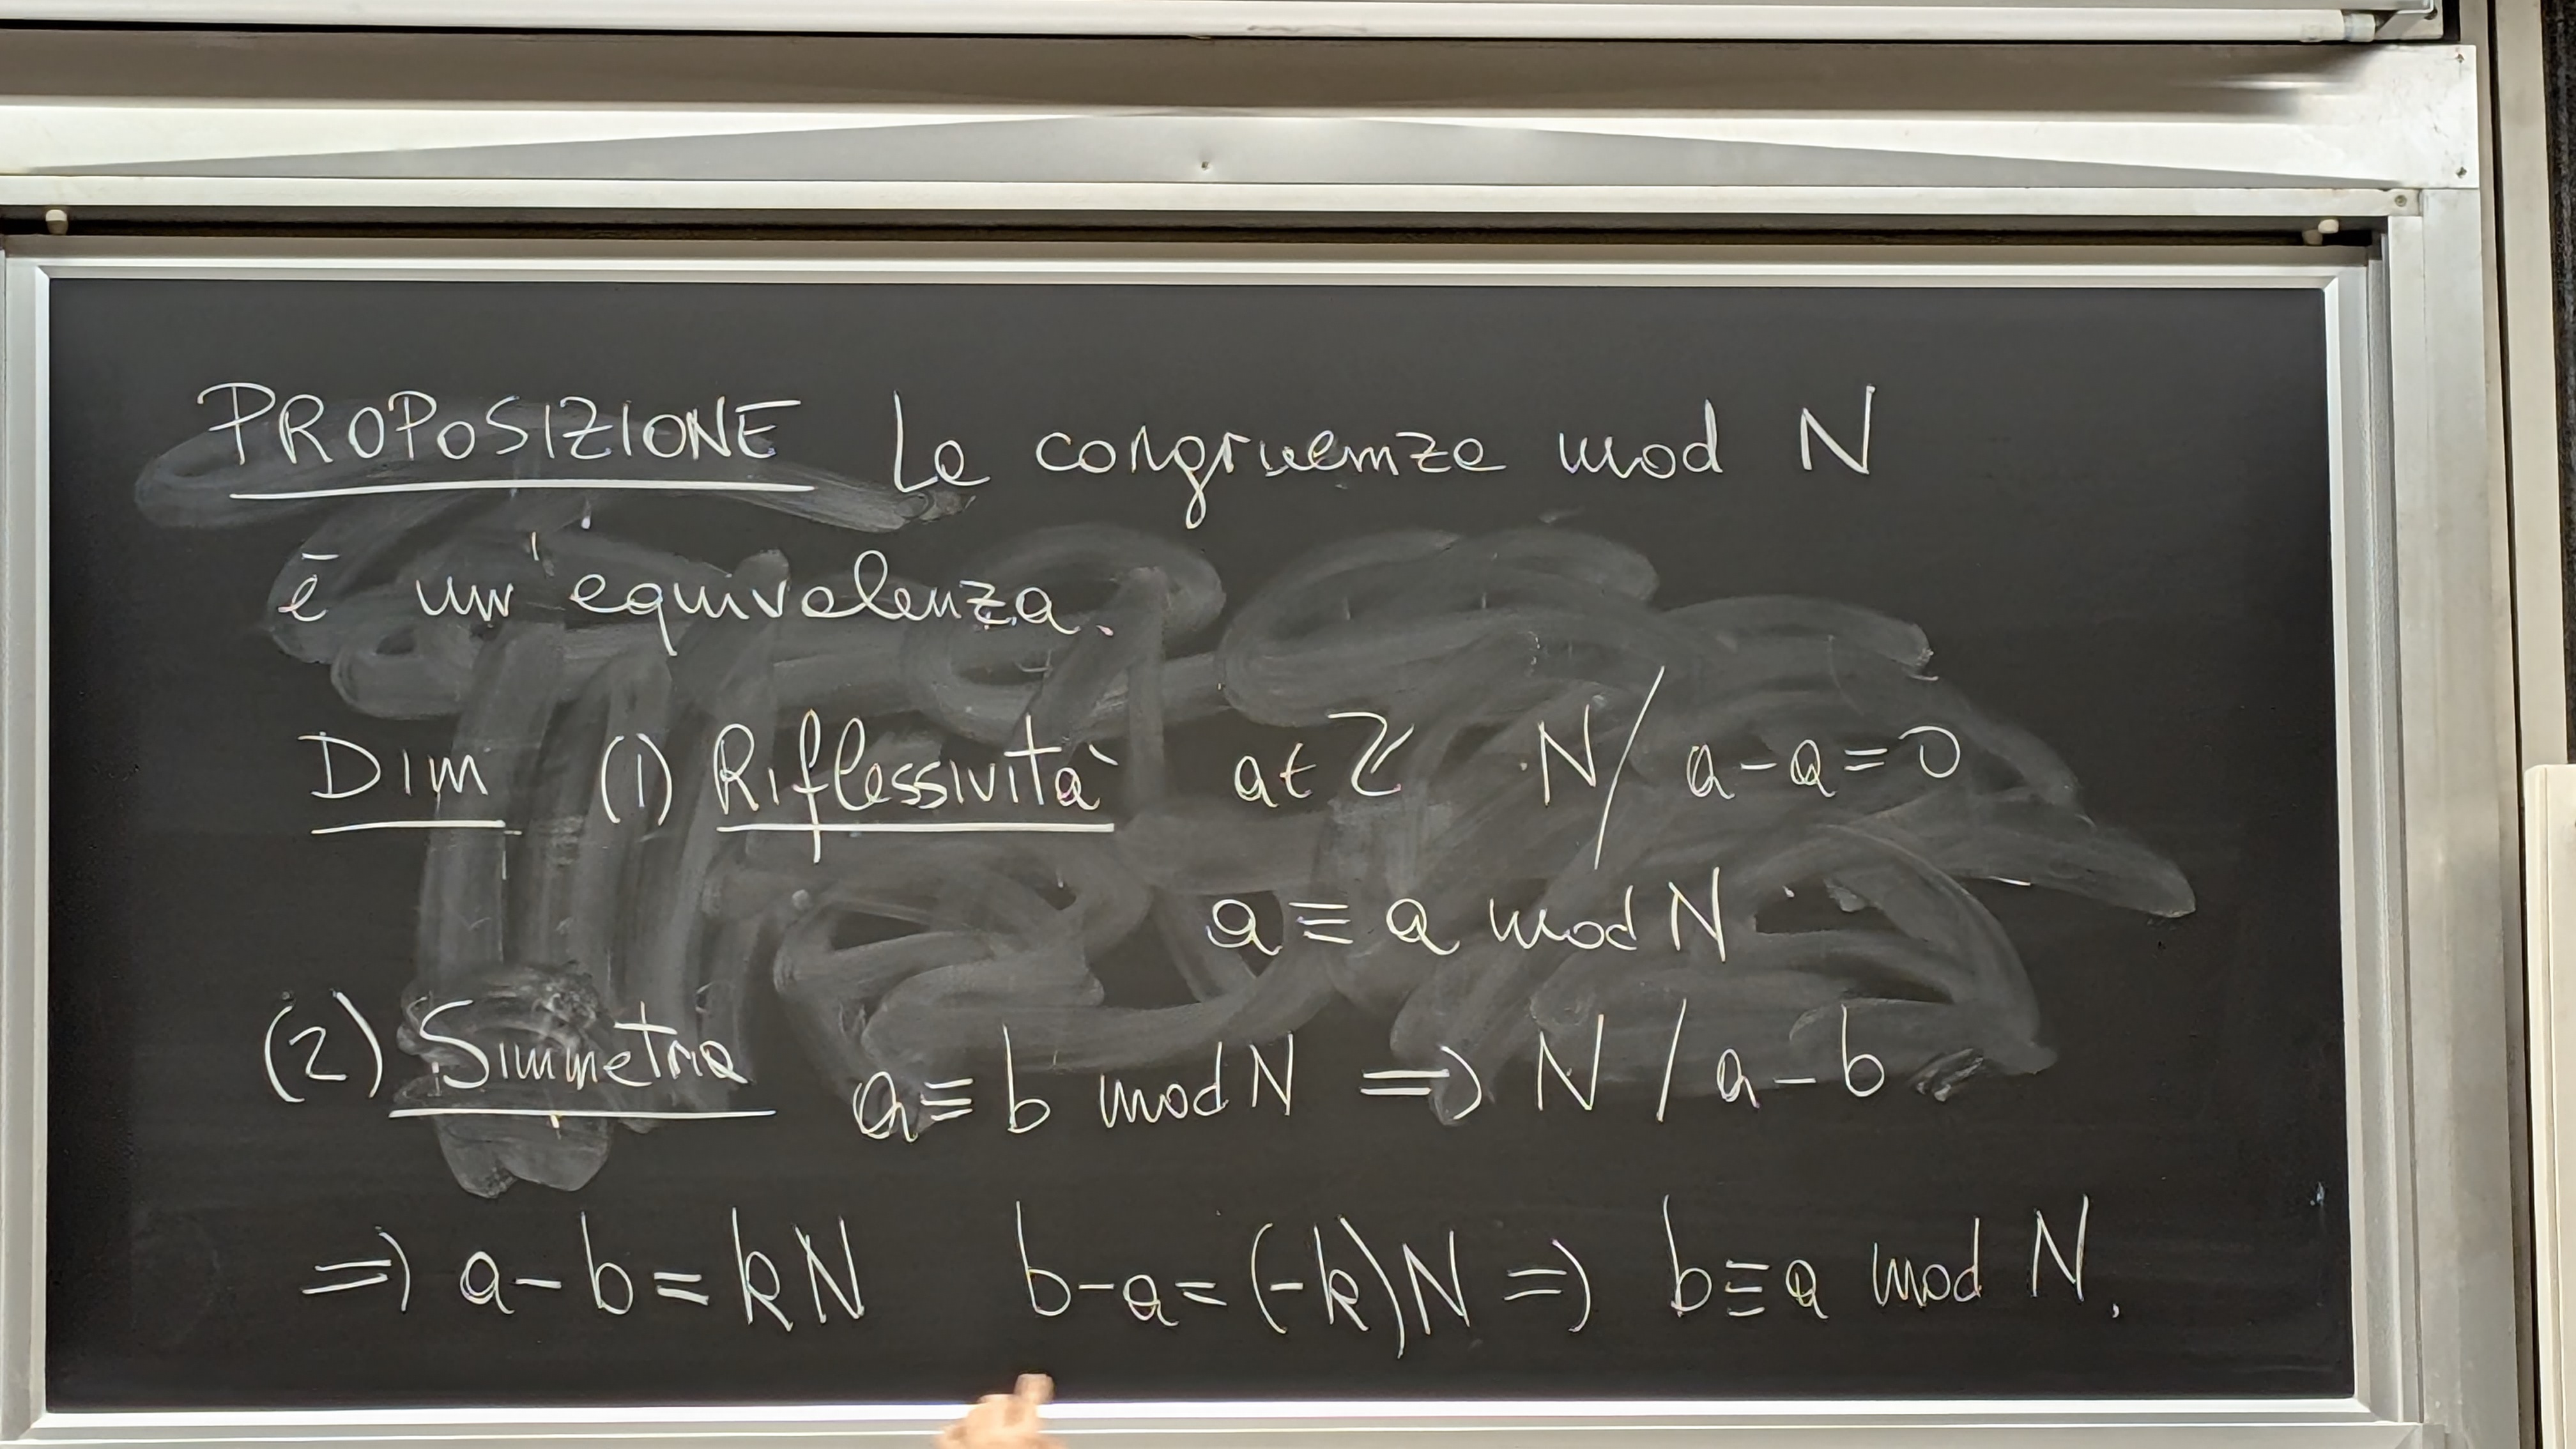 PROPOSIZIONE La congruenza mod N
è un'equivalenza.
Dim (1) Riflessività a ∈ ℤ N / a - a = 0
a ≡ a mod N
(2) Simmetria a ≡ b mod N => N / a - b
=> a - b = kN b - a = (-k)N => b ≡ a mod N.